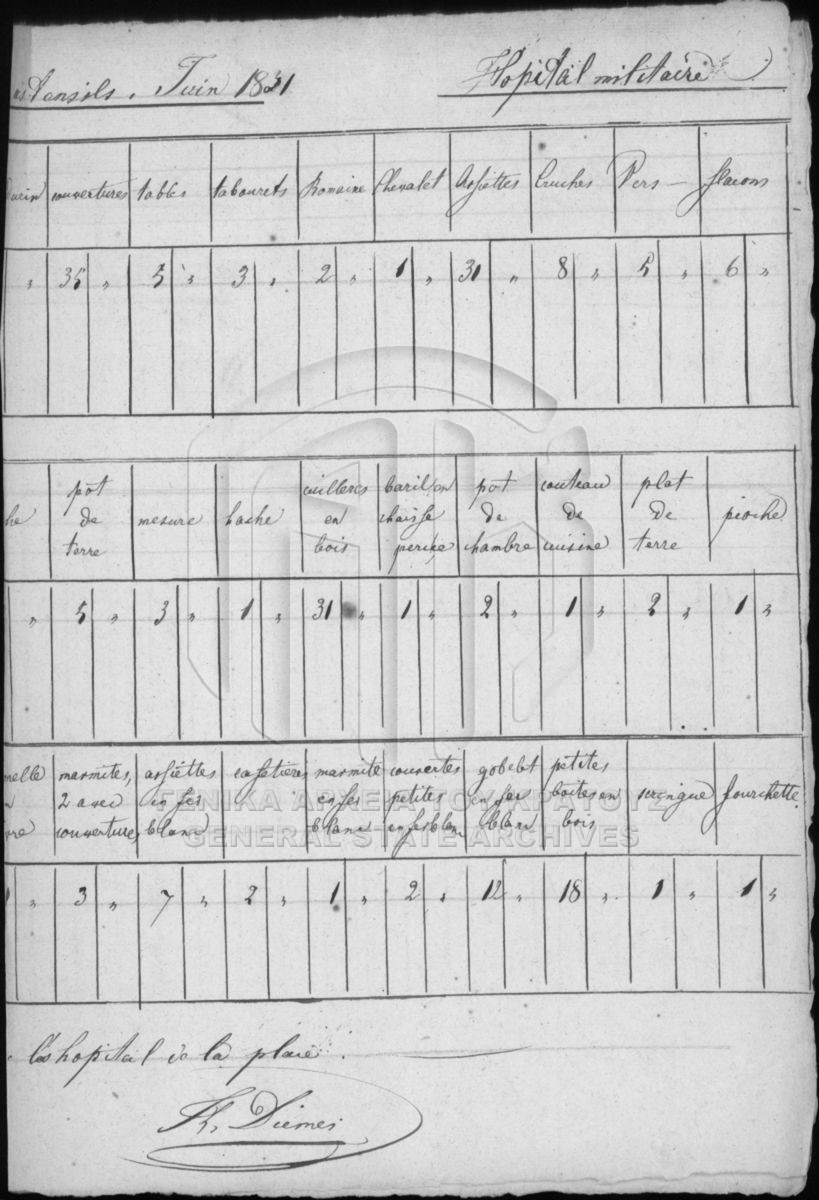 ustansils. Juin 1831 Hopital militaire
couvertures tables tabourets Romaine Chevalet Assiettes Cruches Vers flacons
" 35 " 5 " 3 " 2 " 1 " 31 " 8 " 5 " 6 "
pot de terre mesure hache cuilleres en bois pot de chambre couteau de cuisine plat de terre pioche
" 5 " 3 " 1 " 31 " 1 " 2 " 1 " 2 " 1 "
marmites, 2 avec couverture, assiettes en fer blanc cafetieres marmite en fer blanc couvertes petites en fer blanc gobelet en fer blanc petites boites en bois seringue fourchette.
" 3 " 7 " 2 " 1 " 2 " 12 " 18 " 1 " 1 "
hopital de la place.
Th. Diemer
ΓΕΝΙΚΑ ΑΡΧΕΙΑ ΤΟΥ ΚΡΑΤΟΥΣ
GENERAL STATE ARCHIVES